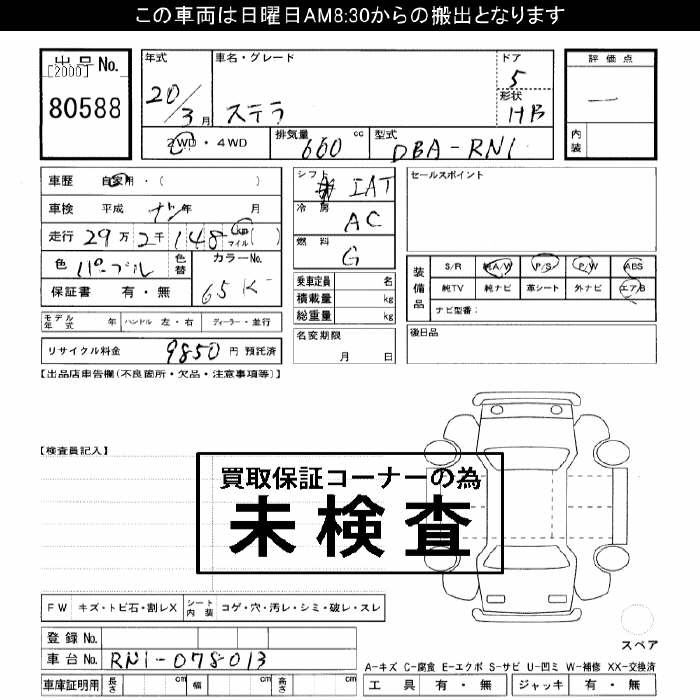 この車両は日曜日AM8:30からの搬出となります
出品No.
[2000]
80588
年式 車名・グレード ドア
20/3月 ステラ 5
形状 HB
2WD・4WD 排気量 660 cc 型式 DBA-RN1
評価点
—
内装
車歴 自家用・( )
車検 平成 ナシ年 月
走行 29万2千148 km マイル ( )
色 パープル 色替 カラーNo. 65K
保証書 有・無
モデル年式 年 ハンドル 左・右 ディーラー・並行
リサイクル料金 9850 円 預託済
シフト IAT
冷房 AC
燃料 G
乗車定員 名
積載量 kg
総重量 kg
名変期限
月 日
セールスポイント
装備品 S/R 純A/W P/S P/W ABS
純TV 純ナビ 革シート 外ナビ エアB
ナビ型番:
後日品
【出品店車告欄(不良箇所・欠品・注意事項等)】
【検査員記入】
買取保証コーナーの為
未検査
FW キズ・トビ石・割レX シート内装 コゲ・穴・汚レ・シミ・破レ・スレ
登録No.
車台No. RN1-078013
車庫証明用 長さ cm 幅 cm 高さ cm
スペア
A-キズ C-腐食 E-エクボ S-サビ U-凹ミ W-補修 XX-交換済
工具 有・無 ジャッキ 有・無